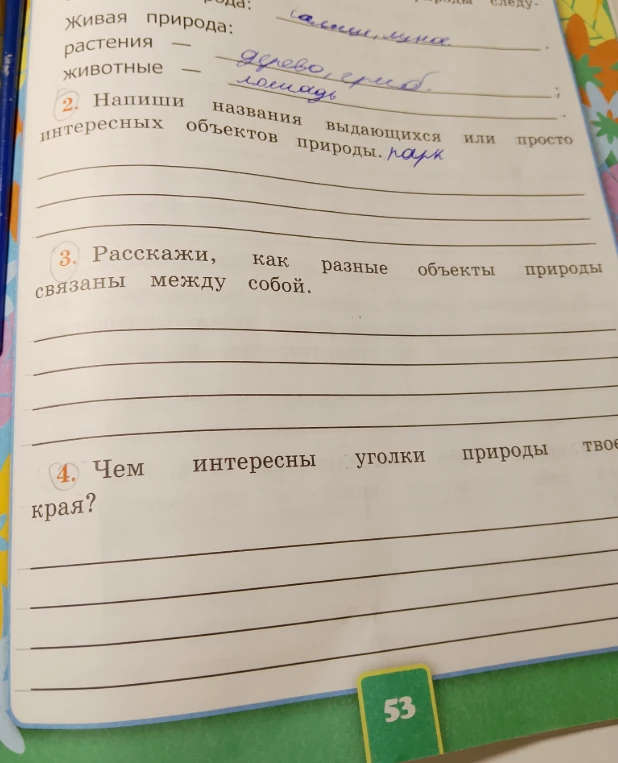 ода: роды следу-
Живая природа: солнце, луна.
растения — дерево, гриб. ;
животные — лошадь .
2. Напиши названия выдающихся или просто
интересных объектов природы. парк
3. Расскажи, как разные объекты природы
связаны между собой.
4. Чем интересны уголки природы твое
края?
53